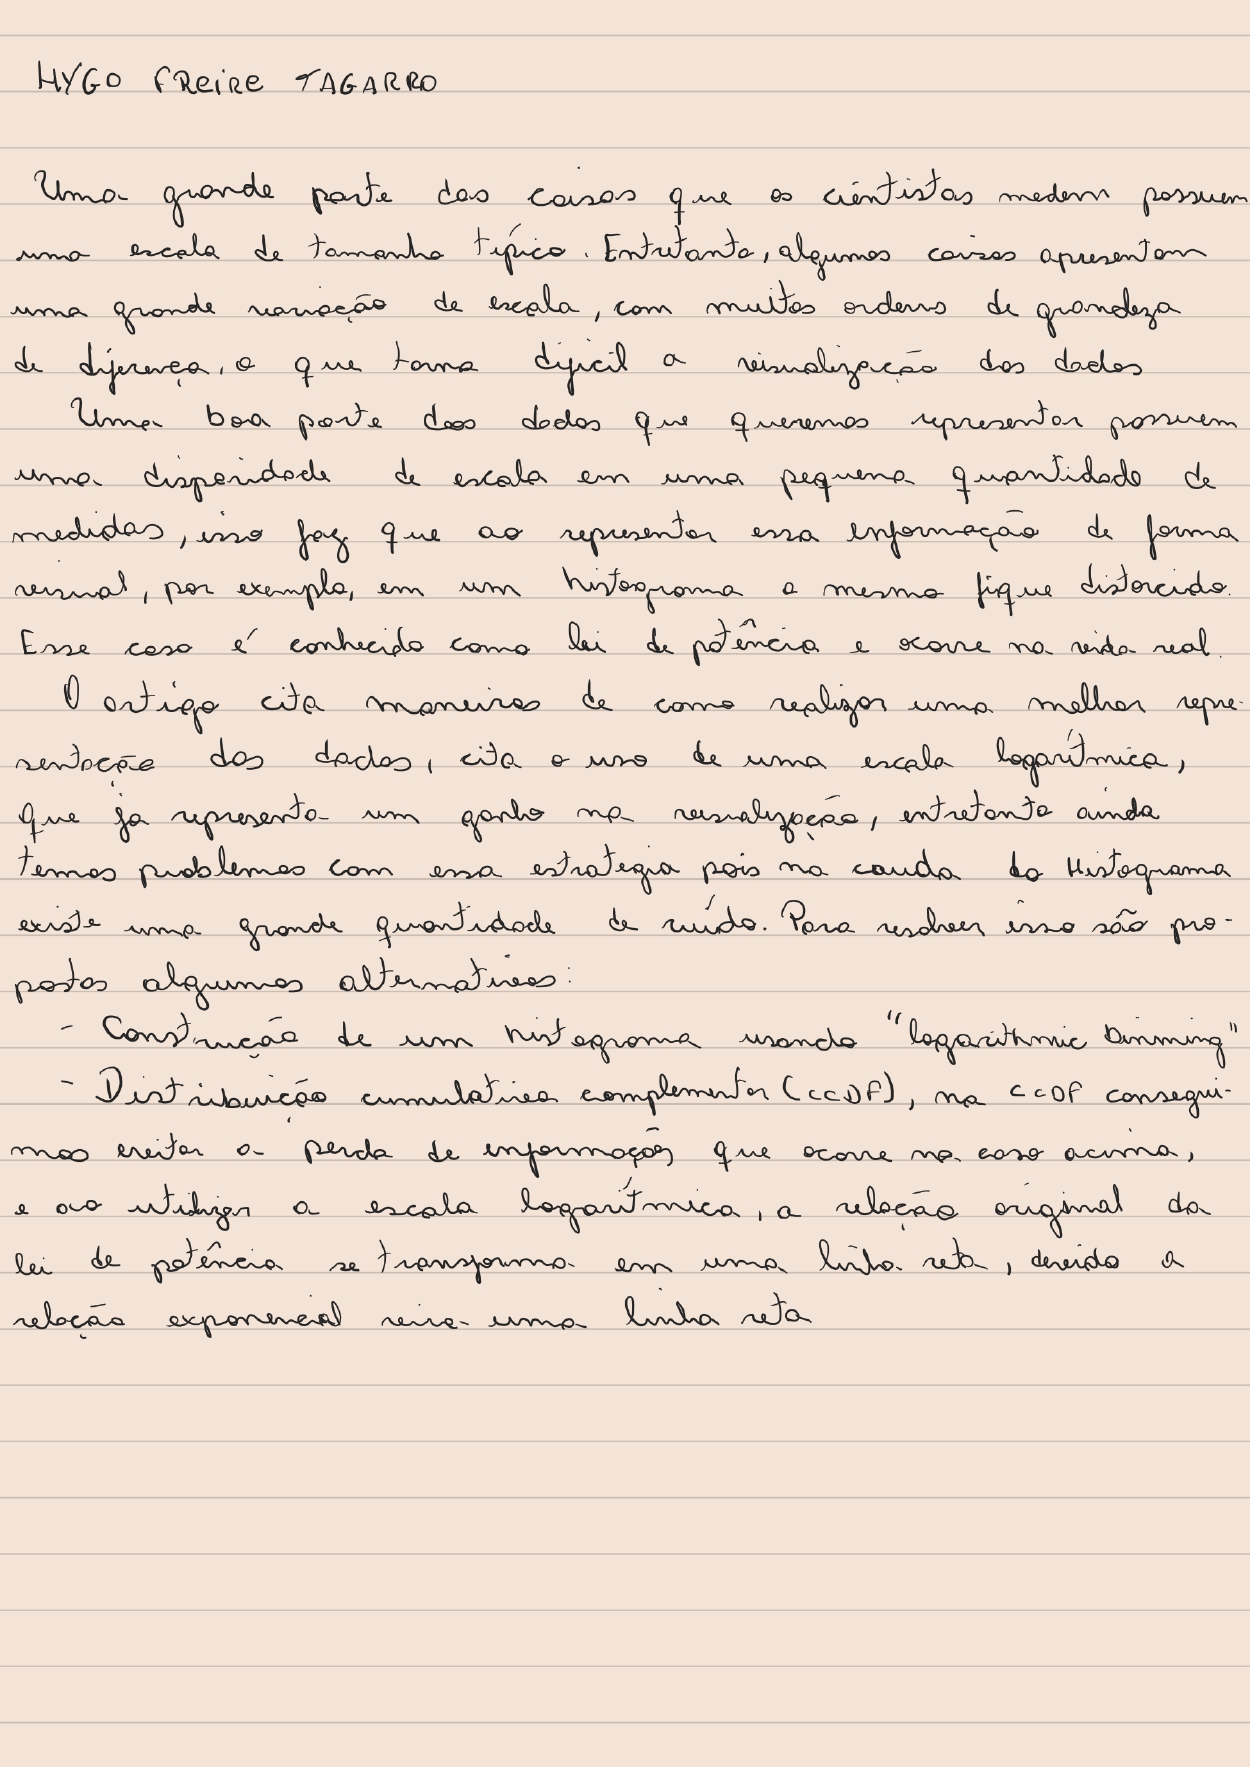 HYGO FREIRE TAGARRO
Uma grande parte das coisas que os cientistas medem possuem
uma escala de tamanho típico. Entretanto, algumas coisas apresentam
uma grande variação de escala, com muitas ordens de grandeza
de diferença, o que torna difícil a visualização dos dados
Uma boa parte dos dados que queremos representar possuem
uma disparidade de escala em uma pequena quantidade de
medidas, isso faz que ao representar essa informação de forma
visual, por exemplo, em um histograma o mesmo fique distorcido.
Esse caso é conhecido como lei de potência e ocorre na vida real.
O artigo cita maneiras de como realizar uma melhor repre-
sentação dos dados, cita o uso de uma escala logarítmica,
que ja representa um ganho na visualização, entretanto ainda
temos problemas com essa estrategia pois na cauda do Histograma
existe uma grande quantidade de ruído. Para resolver isso são pro-
postas algumas alternativas:
- Construção de um histograma usando "logarithmic binning"
- Distribuição cumulativa complementar (CCDF), na CCDF consegui-
mos evitar a perda de informações que ocorre no caso acima,
e ao utilizar a escala logarítmica, a relação original da
lei de potência se transforma em uma linha reta, devido a
relação exponencial vira uma linha reta